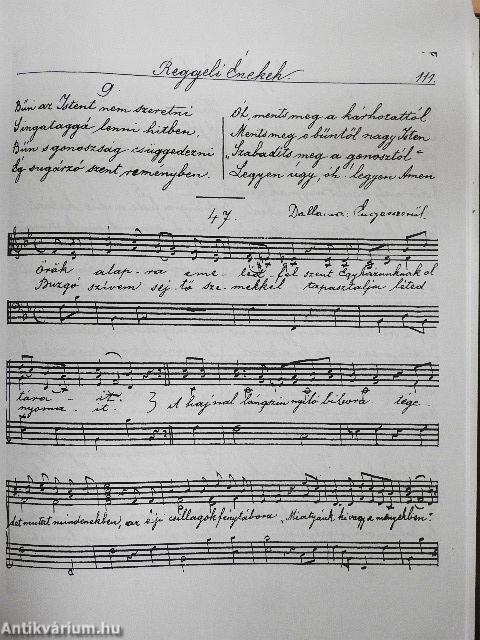 Reggeli Énekek
111.
9.
Bűn az Istent nem szeretni
Singataggá lenni hitben,
Bűn s gonoszság csüggedezni
Ég sugárzó szent reményben.
Oh, ments meg a kárhozattól
Ments meg e bűntől nagy Isten
"Szabadíts meg a gonosztól"
Legyen úgy, óh legyen Amen
47.
Dallama:
Örök alap-ra eme-léd fel szent Egyházunknak ol
Buzgó szívem sej-tő sze-mekkel tapasztalja léted
tára - it.
nyoma - it.
A hajnal lángszin nyíló bíbora tége-
det mutat mindenekben, az éji csillagok fénytábora "Miatyánk, ki vagy a menyekben"
Antikvárium.hu